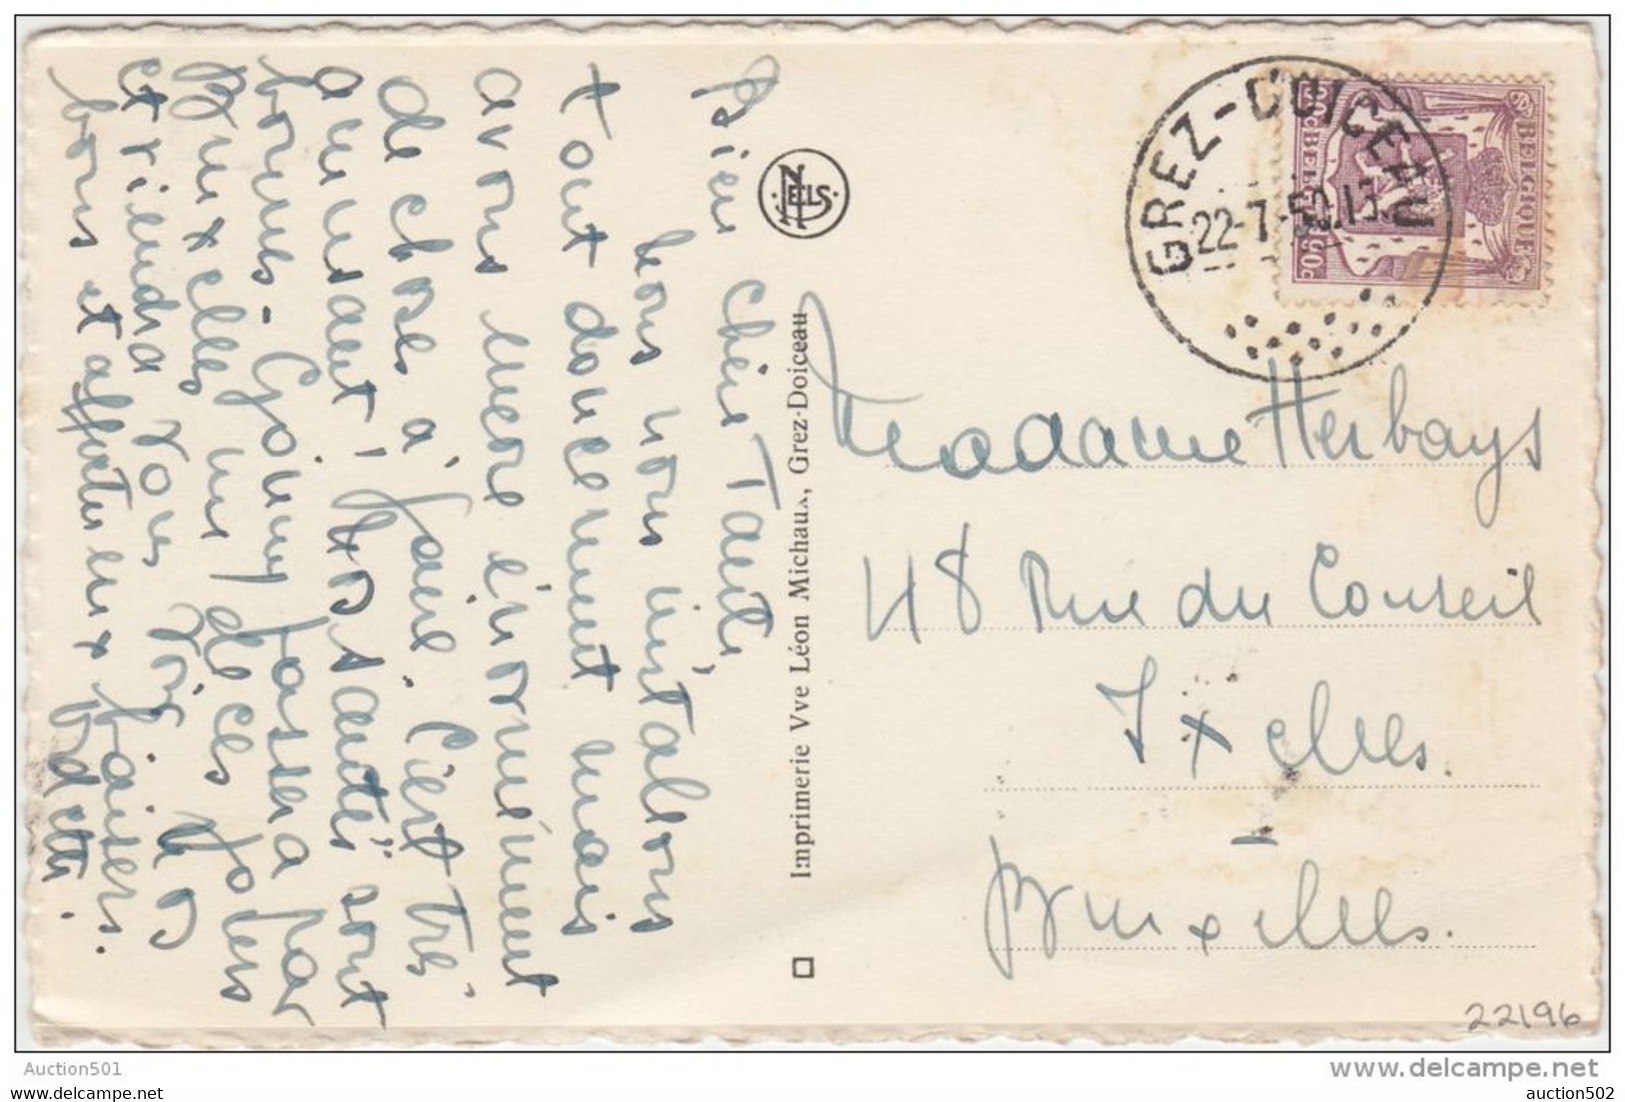 Bien chère Tante,
Nous nous installons
tout doucement mais
avons encore énormément
de choses à faire. C'est très
amusant! Nos santés sont
bonnes. Gommy passera par
Bruxelles un de ces jours
et viendra vous voir.
bons et affectueux baisers.
Odette.
NELS
Imprimerie Vve Léon Michaux, Grez-Doiceau
GREZ-DOICEAU
22-7-50.13
BELGIQUE
90c
Madame Herbays
48 Rue du Conseil
Ixelles.
Bruxelles.
22196
Auction501
www.delcampe.net
auction502